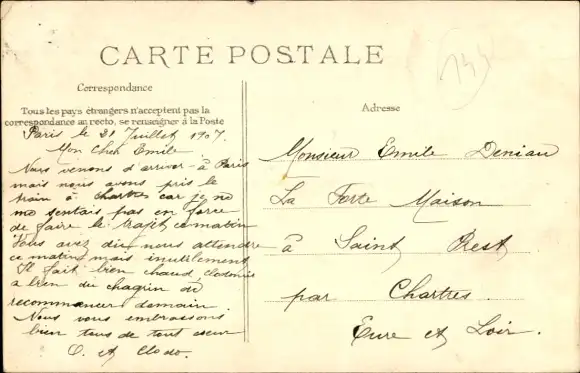 CARTE POSTALE
Correspondance
Tous les pays étrangers n'acceptent pas la
correspondance au recto, se renseigner à la Poste
Paris le 21 Juillet 1907.
Mon Cher Emile
Nous venons d'arriver à Paris
mais nous avons pris le
train à Chartres car je ne
me sentais pas en force
de faire le trajet ce matin
Vous avez dû nous attendre
ce matin mais inutilement
Il fait bien chaud,
a bien du chagrin de
recommencer demain
Nous vous embrassons
bien tous de tout cœur
O. et Clodo.
Adresse
Monsieur Emile Deniau
La Forte Maison
à Saint Prest
par Chartres.
Eure et Loir.